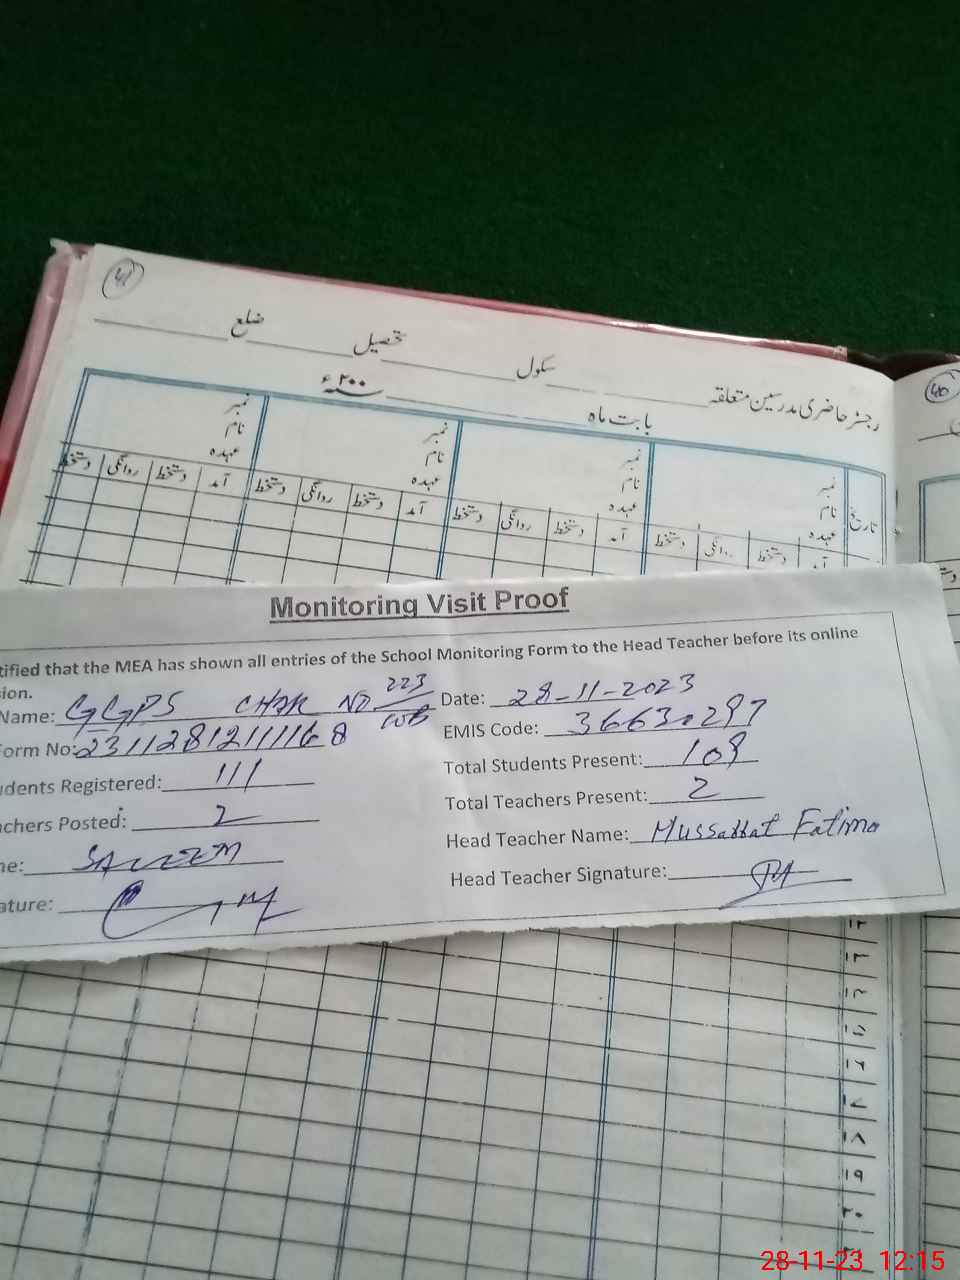 41
ضلع تحصیل سکول رجسٹر حاضری مدرسین متعلقہ
40
بابت ماہ سنہ ۲۰۰ء
نمبر نمبر نمبر نمبر
نام نام نام نام
عہدہ عہدہ عہدہ عہدہ
تاریخ آمد دستخط روانگی دستخط آمد دستخط روانگی دستخط آمد دستخط روانگی دستخط آمد دستخط روانگی دستخط
Monitoring Visit Proof
tified that the MEA has shown all entries of the School Monitoring Form to the Head Teacher before its online
sion.
Name: GGPS CHAK NO 223/WB Date: 28-11-2023
orm No: 231128121111168 EMIS Code: 36630297
udents Registered: 111 Total Students Present: 109
achers Posted: 2 Total Teachers Present: 2
me: SALEEM Head Teacher Name: Mussarrat Fatima
ature: Head Teacher Signature:
۱۲
۱۳
۱۴
۱۵
۱۶
۱۷
۱۸
۱۹
۲۰
28-11-23 12:15